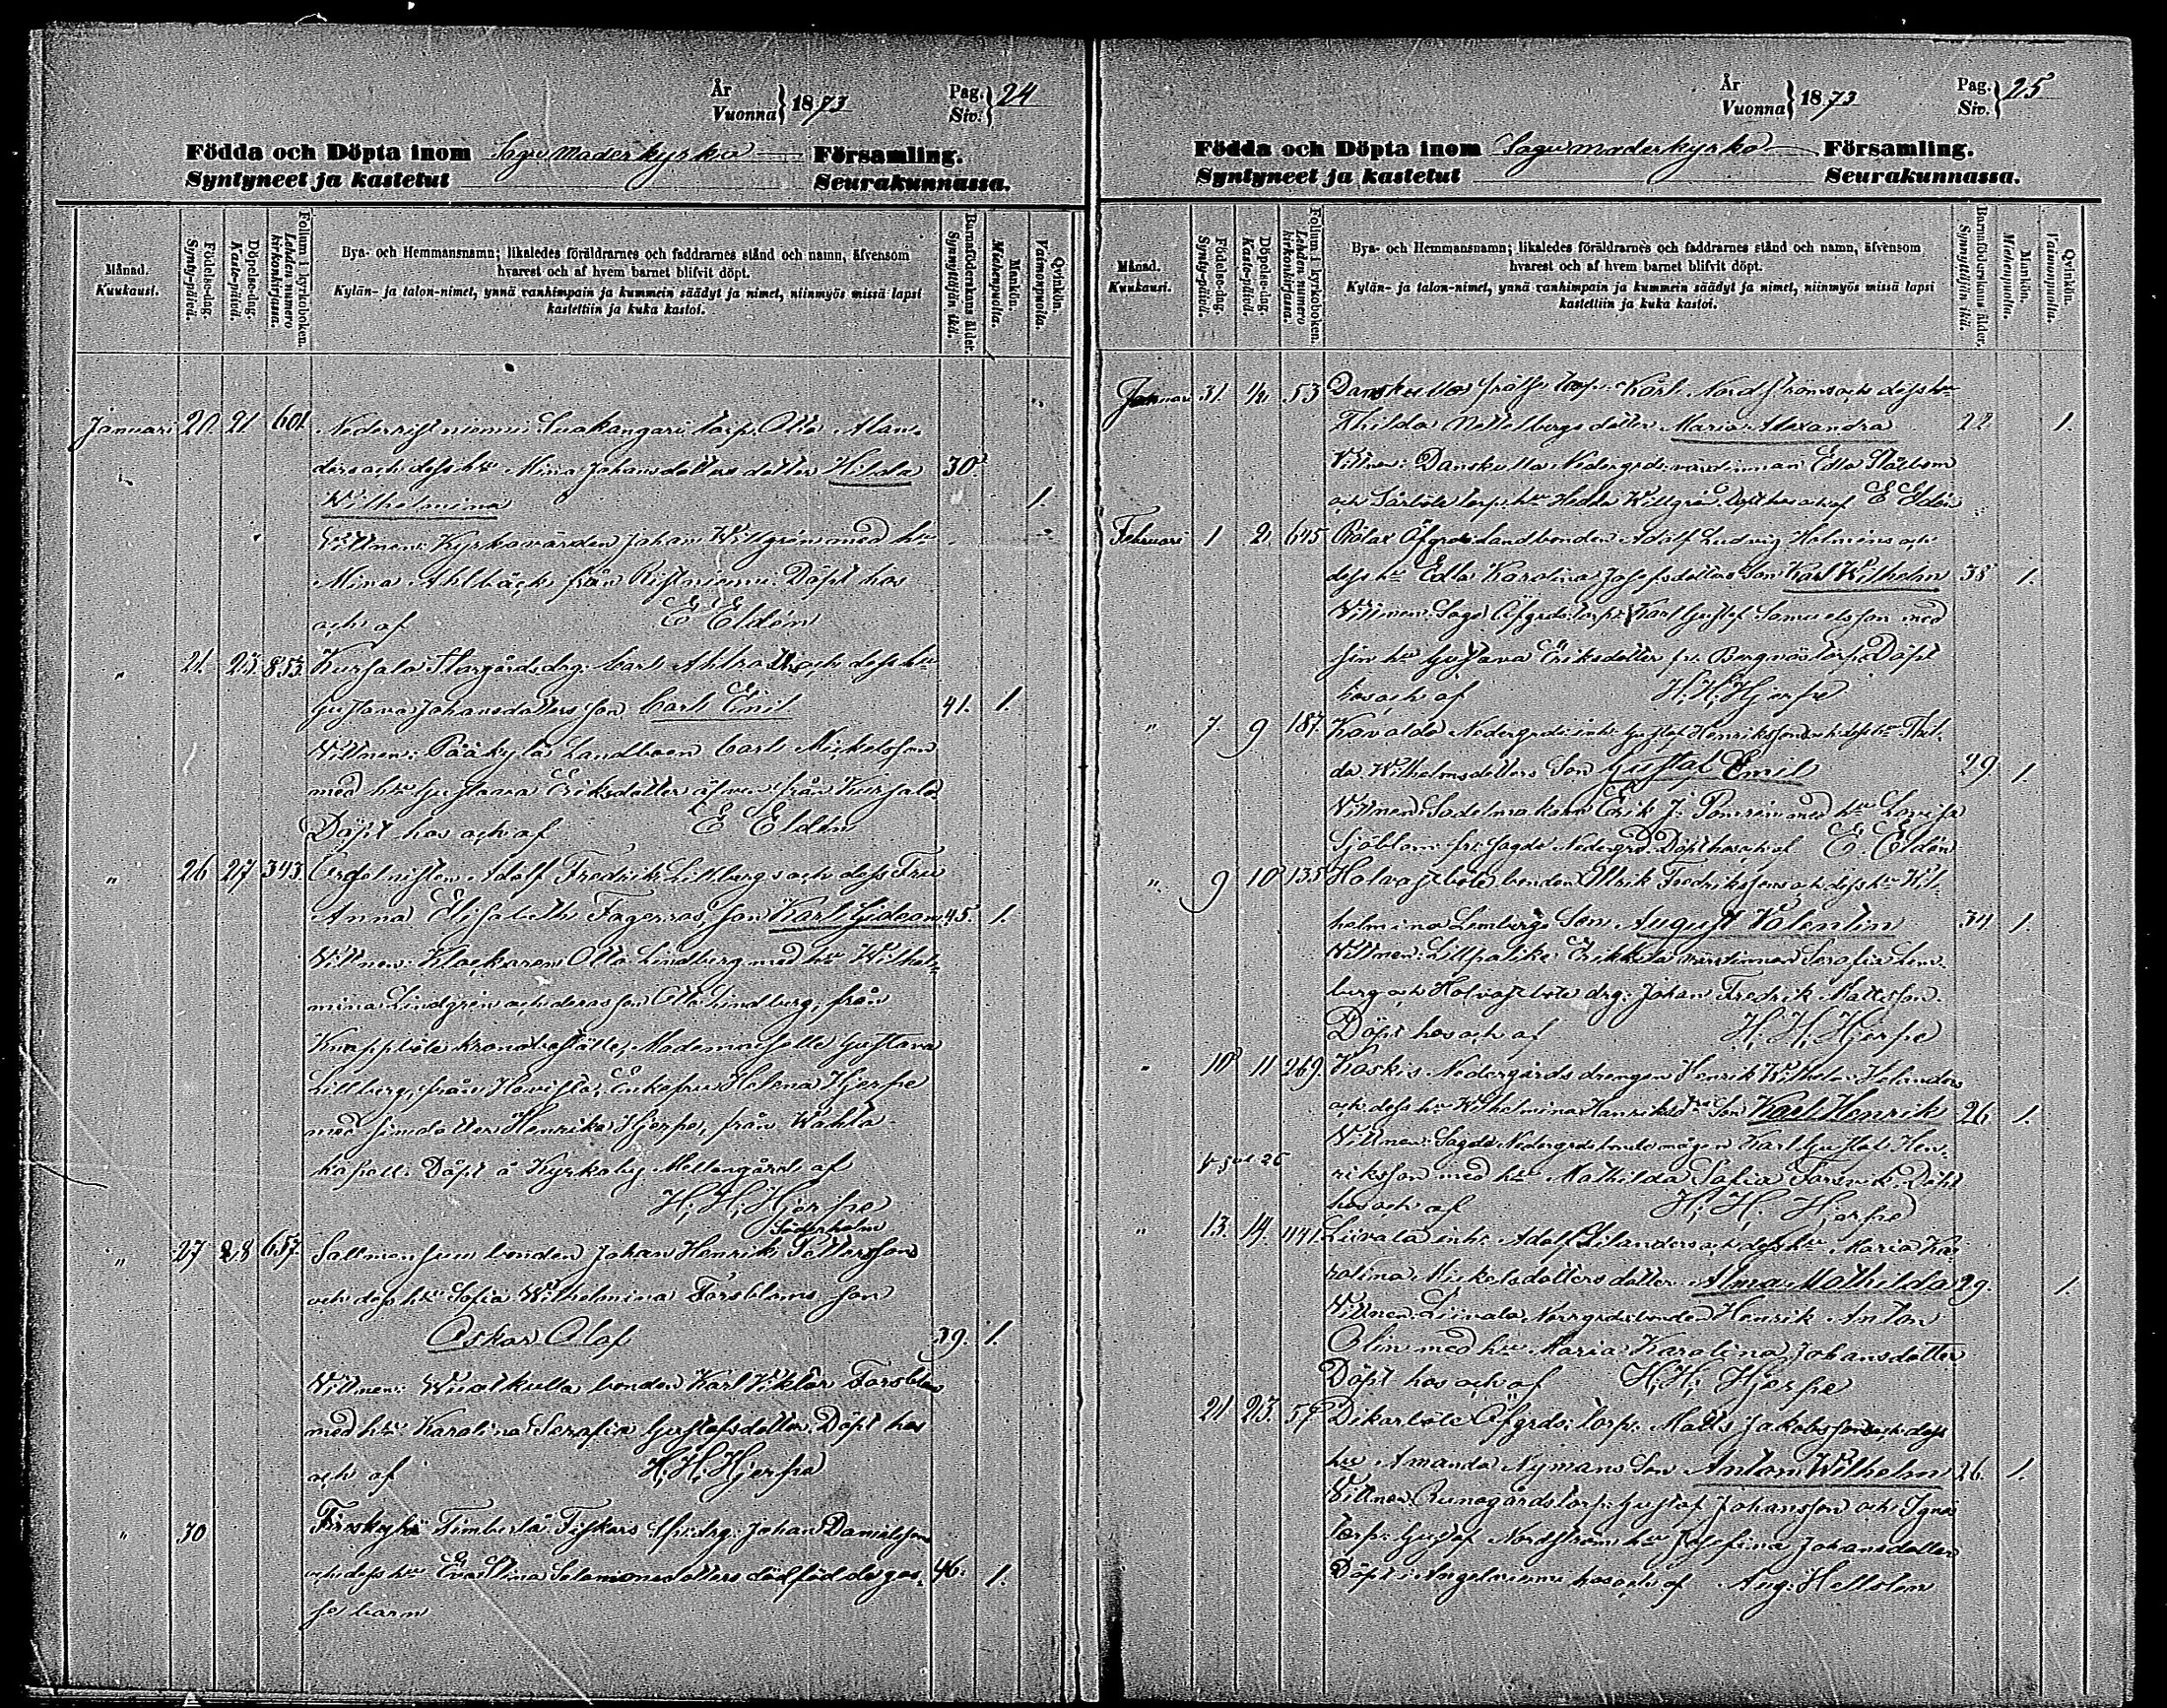 År
Vuonna } 1873
Pag.
Siv. } 24
Födda och Döpta inom Sagu Moderkyrko Församling.
Syntyneet ja kastetut Seurakunnassa.
Månad.
Kuukausi.
Födelse-dag.
Synty-päivä.
Döpelse-dag.
Kaste-päivä.
Folium i kyrkoboken.
Lehden numero kirkonkirjassa.
Bya- och Hemmansnamn; likaledes föräldrarnes och faddrarnes stånd och namn, äfvensom
hvarest och af hvem barnet blifvit döpt.
Kylän- ja talon-nimet, ynnä vanhimpain ja kummein säädyt ja nimet, niinmyös missä lapsi
kastettiin ja kuka kastoi.
Barnaföderskans ålder.
Synnyttäjän ikä.
Mankön.
Miehenpuolia.
Qvinkön.
Vaimonpuolia.
Januari 20 21 601. torp. Otto Alan-
ders och dess hu Mina Johansdotters dotter Hilda 30
Wilhelmina 1.
Vittnen: Kyrkovärden Johan Willgrén med hu
Mina Ahlbäck från Ristniemi. Döpt hos
och af E Eldén
" 21. 23. 853. Kursala Storgårds drg. Carl och dess hu
Gustava Johansdotters son Carl Emil 41. 1.
Vittnen: Pääkylä Landboen Carl Mickelsson
med hu Gustava Eriksdotter äfven från Kursala
Döpt hos och af E Eldén
" 26 27 343 Orgelnisten Adolf Fredrik Lillbergs och dess Fru
Anna Elisabeth Fagerros, son Karl Gideon 45. 1.
Vittnen: Klockaren Otto Lindberg med hu Wilhel-
mina Lindgrén och deras son Otto Lindberg, från
Knappböle Mademoiselle Gustava
Lillberg, från Enkefru Helena Hjerpe
med sin dotter Henrika Hjerpe, från
kapell. Döpt å Kyrkoby Mellangård af
H. H. Hjerpe
Söderholm
" 27 28 657. bonden Johan Henrik
och dess hu Sofia Wilhelmina Forsbloms son
Oskar Olof 39. 1.
Vittnen: bonden Karl Viktor Forsblom
med hu Karolina Serafia Gustafsdotter. Döpt hos
och af H. H. Hjerpe
" 30 drg. Johan Danielssons
och dess hu Eva Stina Salomonsdotters dödfödde gos- 46. 1.
se barn
År
Vuonna } 1873
Pag.
Siv. } 25
Födda och Döpta inom Sagu moderkyrko Församling.
Syntyneet ja kastetut Seurakunnassa.
Månad.
Kuukausi.
Födelse-dag.
Synty-päivä.
Döpelse-dag.
Kaste-päivä.
Folium i kyrkoboken.
Lehden numero kirkonkirjassa.
Bya- och Hemmansnamn; likaledes föräldrarnes och faddrarnes stånd och namn, äfvensom
hvarest och af hvem barnet blifvit döpt.
Kylän- ja talon-nimet, ynnä vanhimpain ja kummein säädyt ja nimet, niinmyös missä lapsi
kastettiin ja kuka kastoi.
Barnaföderskans ålder.
Synnyttäjän ikä.
Mankön.
Miehenpuolia.
Qvinkön.
Vaimonpuolia.
Januari 31. 53 Danskulla frälse torp. Karl Nordströms och dess hu
Thilda Nettelbergs dotter Maria Alexandra 22 1.
Vittnen: Danskulla Nedergrds värdinnan Edla
och Särböle torp. hu Hedda Döpt hos och af E Eldén
Februari 1 2. 645 Rölax Öfgrds Landbonden Adolf Ludvig Holméns och
dess hu Edla Karolina Josefsdotters son Karl Wilhelm 38 1.
Vittnen: Öfgrds torp: Karl Gustaf Samuelsson med
sin hu Gustava Eriksdotter fr. torp. Döpt
hos och af H. H. Hjerpe
" 7. 9 187. Nedergrds inh. Gustaf Henrikssons och dess hu Thil-
da Wilhelmsdotters Son Gustaf Emil 29. 1.
Vittnen: Sadelmakaren Erik J. med hu Lovisa
Sjöblom fr: Nedergrd. Döpt hos och af E. Eldén
" 9 10 135 bonden Ulrik Fredrikssons och dess hu Wil-
helmina Lembergs Son August Valentin 34. 1.
Vittnen: Lillpalike Erikkila värdinnan Serafia Lem-
berg och drg: Johan Fredrik Mattsson.
Döpt hos och af H. H. Hjerpe
" 10 11 269. Koskis Nedergårds drengen Henrik Wilhelm Helanders
och dess hu Wilhelmina Henriksdtrs Son Karl Henrik 26. 1.
Vittnen: Nedergrds Karl Gustaf Hen-
riksson med hu Mathilda Sofia Döpt
hos och af H. H. Hjerpe
" 13. 14. 1141. Liivala inh. Adolf och dess hu Maria Ka-
rolina Mickelsdotters dotter Alma Mathilda 29. 1.
Vittnen: Liivala Norrgrds bonden Henrik Anton
Olin med hu Maria Karolina Johansdotter
Döpt hos och af H. H. Hjerpe
21 23. 57 Dikarböle Öfgrds: torp: Matts Jakobssons och dess
hu Amanda Nymans Son Anton Wilhelm 26. 1.
Vittnen: torp: Gustaf Johansson och
torp: Gustaf Nordströms hu Josefina Johansdotter
Döpt i Angelniemi hos och af Aug: Hellsten